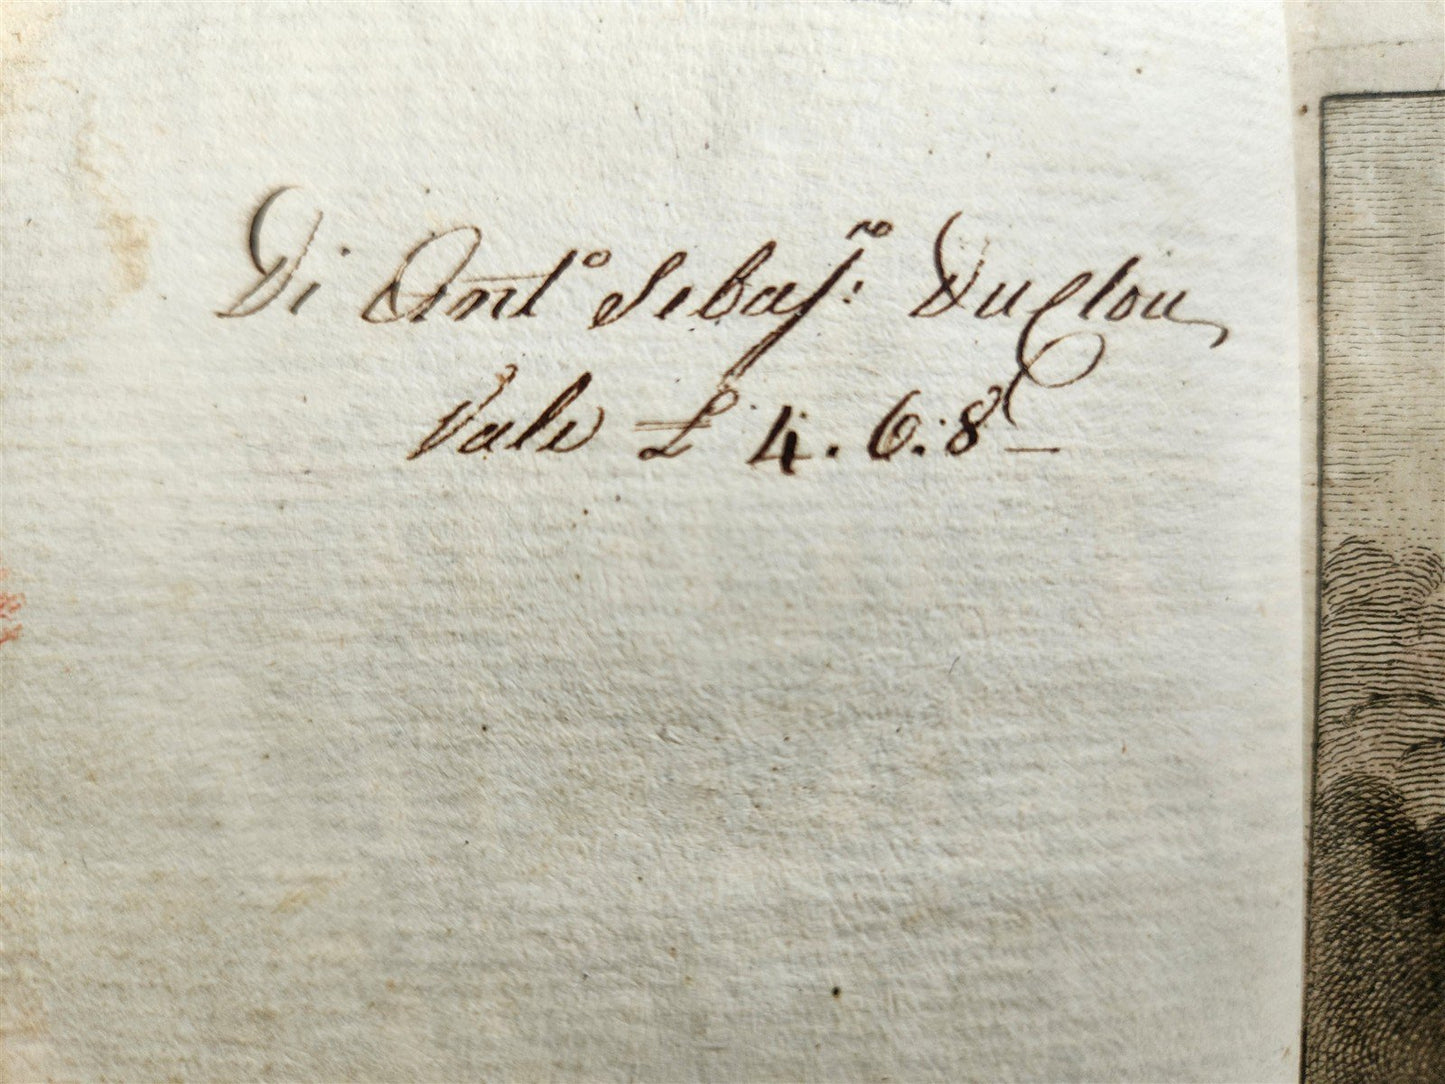 Di Ant.º Sebasʳº: Duclou
Vale £ 4. 6. 8 —